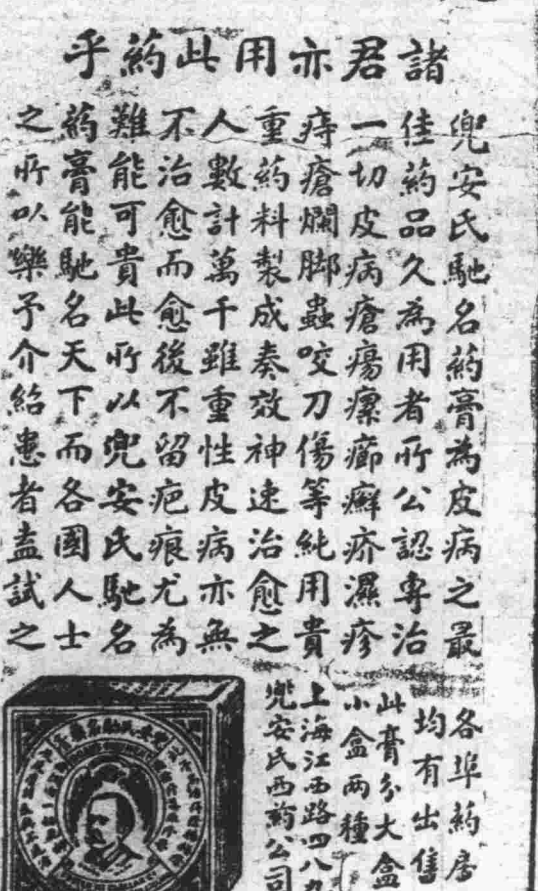 諸君亦用此药乎
兜安氏馳名药膏為皮病之最
佳药品久為用者所公認專治
一切皮病瘡瘍瘰癤癬疥濕疹
痔瘡爛脚蟲咬刀傷等純用貴
重药料製成奏效神速治愈之
人數計萬千雖重性皮病亦無
不治愈而愈後不留疤痕尤為
難能可貴此所以兜安氏馳名
药膏能馳名天下而各國人士
之所以樂予介紹患者盍試之
各埠药房
均有出售
此膏分大盒
小盒兩種
上海江西路四八九
兜安氏西药公司